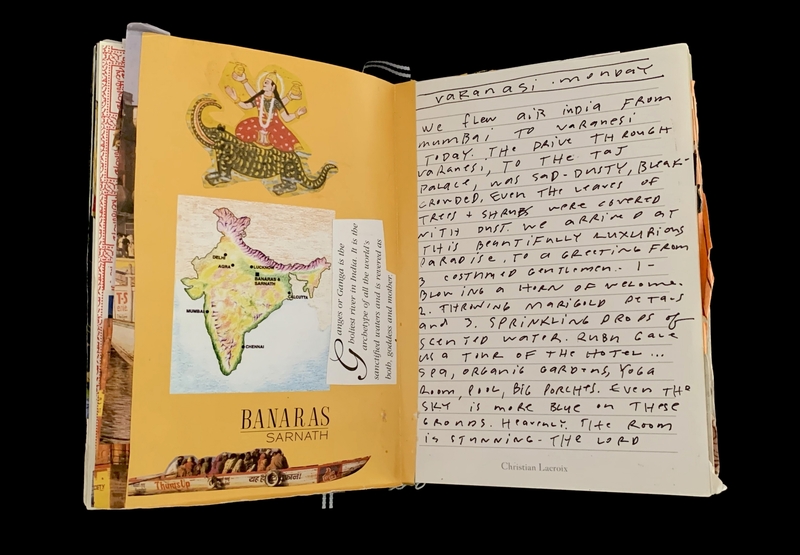 DELHI
AGRA
LUCKNOW
BANARAS &
SARNATH
CALCUTTA
MUMBAI
CHENNAI
Ganges or Ganga is the
holiest river in India. It is the
archetype of all the world's
sanctified waters and is revered as
both, goddess and mother.
BANARAS
SARNATH
ThumsUp
T-S
varanasi. monday
We flew air india From
mumbai To varanesi
Today. The drive Through
varanesi, To The Taj
Palace, was sad-dusty, bleak-
crowded. Even The leaves of
Trees + shrubs were covered
with dust. We arrived at
This beautifully luxurious
Paradise. To a greeting from
3 costumed gentlemen. 1
Blowing a horn of welcome.
2. Throwing marigold petals
and 3. sprinkling drops of
scented water. Ruby gave
us a tour of the hotel...
spa, organic gardens, yoga
room, pool, big porches. Even the
sky is more blue on these
grounds. Heavenly. The room
is stunning - the lord
Christian Lacroix